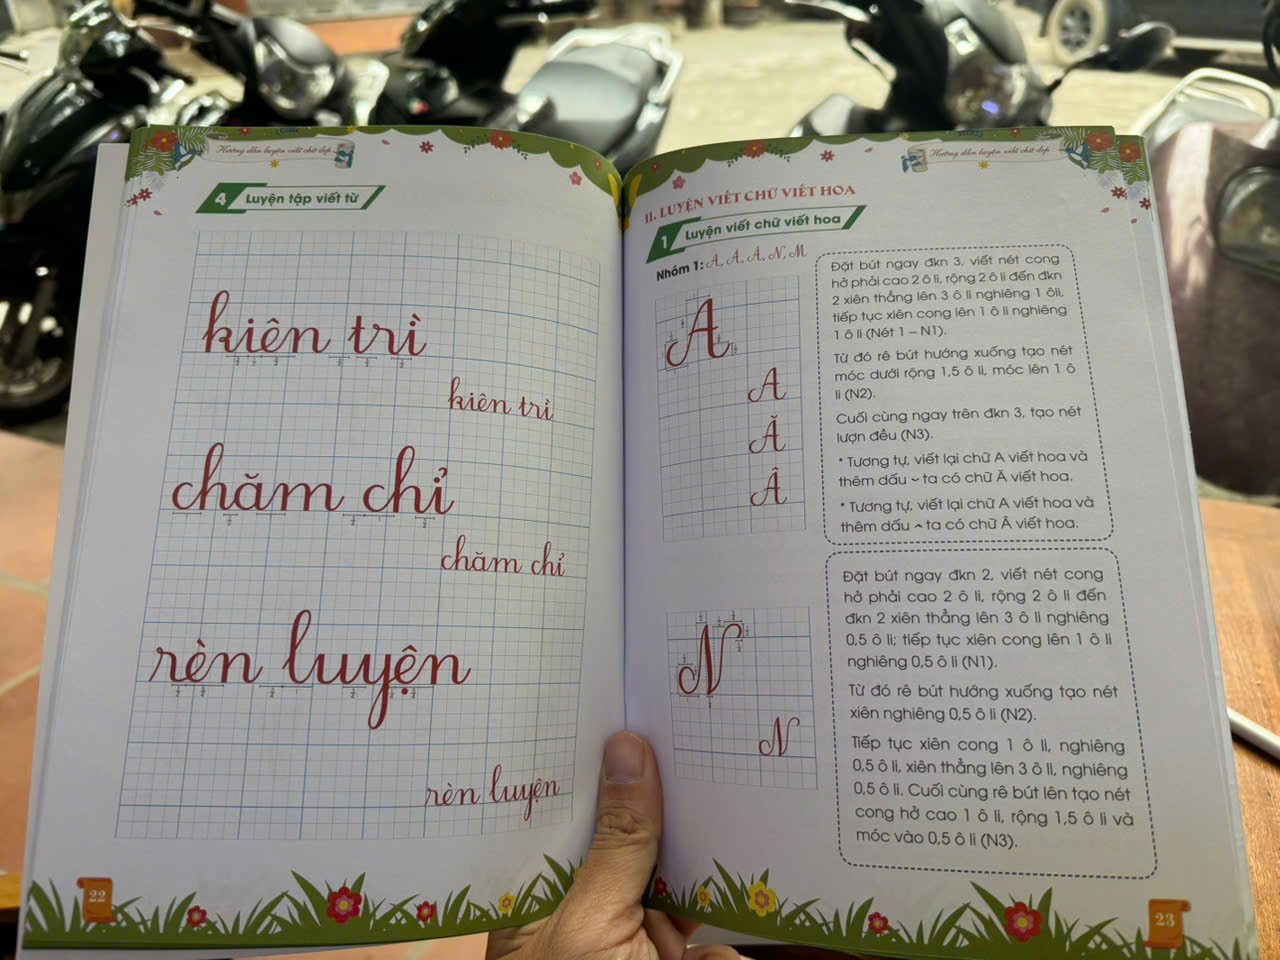 Hướng dẫn luyện viết chữ đẹp
4 Luyện tập viết từ
kiên trì
kiên trì
chăm chỉ
chăm chỉ
rèn luyện
rèn luyện
22
Hướng dẫn luyện viết chữ đẹp
II. LUYỆN VIẾT CHỮ VIẾT HOA
1 Luyện viết chữ viết hoa
Nhóm 1: A, Ă, Â, N, M
A
A
Ă
Â
Đặt bút ngay đkn 3, viết nét cong
hở phải cao 2 ô li, rộng 2 ô li đến đkn
2 xiên thẳng lên 3 ô li nghiêng 1 ôli,
tiếp tục xiên cong lên 1 ô li nghiêng
1 ô li (Nét 1 – N1).
Từ đó rê bút hướng xuống tạo nét
móc dưới rộng 1,5 ô li, móc lên 1 ô
li (N2).
Cuối cùng ngay trên đkn 3, tạo nét
lượn đều (N3).
* Tương tự, viết lại chữ A viết hoa và
thêm dấu ˘ ta có chữ Ă viết hoa.
* Tương tự, viết lại chữ A viết hoa và
thêm dấu ^ ta có chữ Â viết hoa.
N
N
Đặt bút ngay đkn 2, viết nét cong
hở phải cao 2 ô li, rộng 2 ô li đến
đkn 2 xiên thẳng lên 3 ô li nghiêng
0,5 ô li; tiếp tục xiên cong lên 1 ô li
nghiêng 0,5 ô li (N1).
Từ đó rê bút hướng xuống tạo nét
xiên nghiêng 0,5 ô li (N2).
Tiếp tục xiên cong 1 ô li, nghiêng
0,5 ô li, xiên thẳng lên 3 ô li, nghiêng
0,5 ô li. Cuối cùng rê bút lên tạo nét
cong hở cao 1 ô li, rộng 1,5 ô li và
móc vào 0,5 ô li (N3).
23